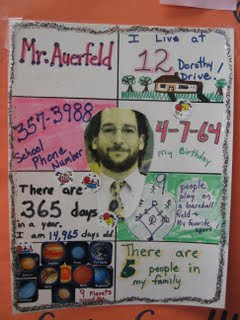 Mr. Auerfeld
I Live at
12 Dorothy
Drive.
357-3988
School
Phone
Number
4-7-64
my Birthday
There are
365 days
in a year.
I am 14,965 days old
9
people
play on
a baseball
field
My favorite
sport
9 Planets
There are
5 people in
my family